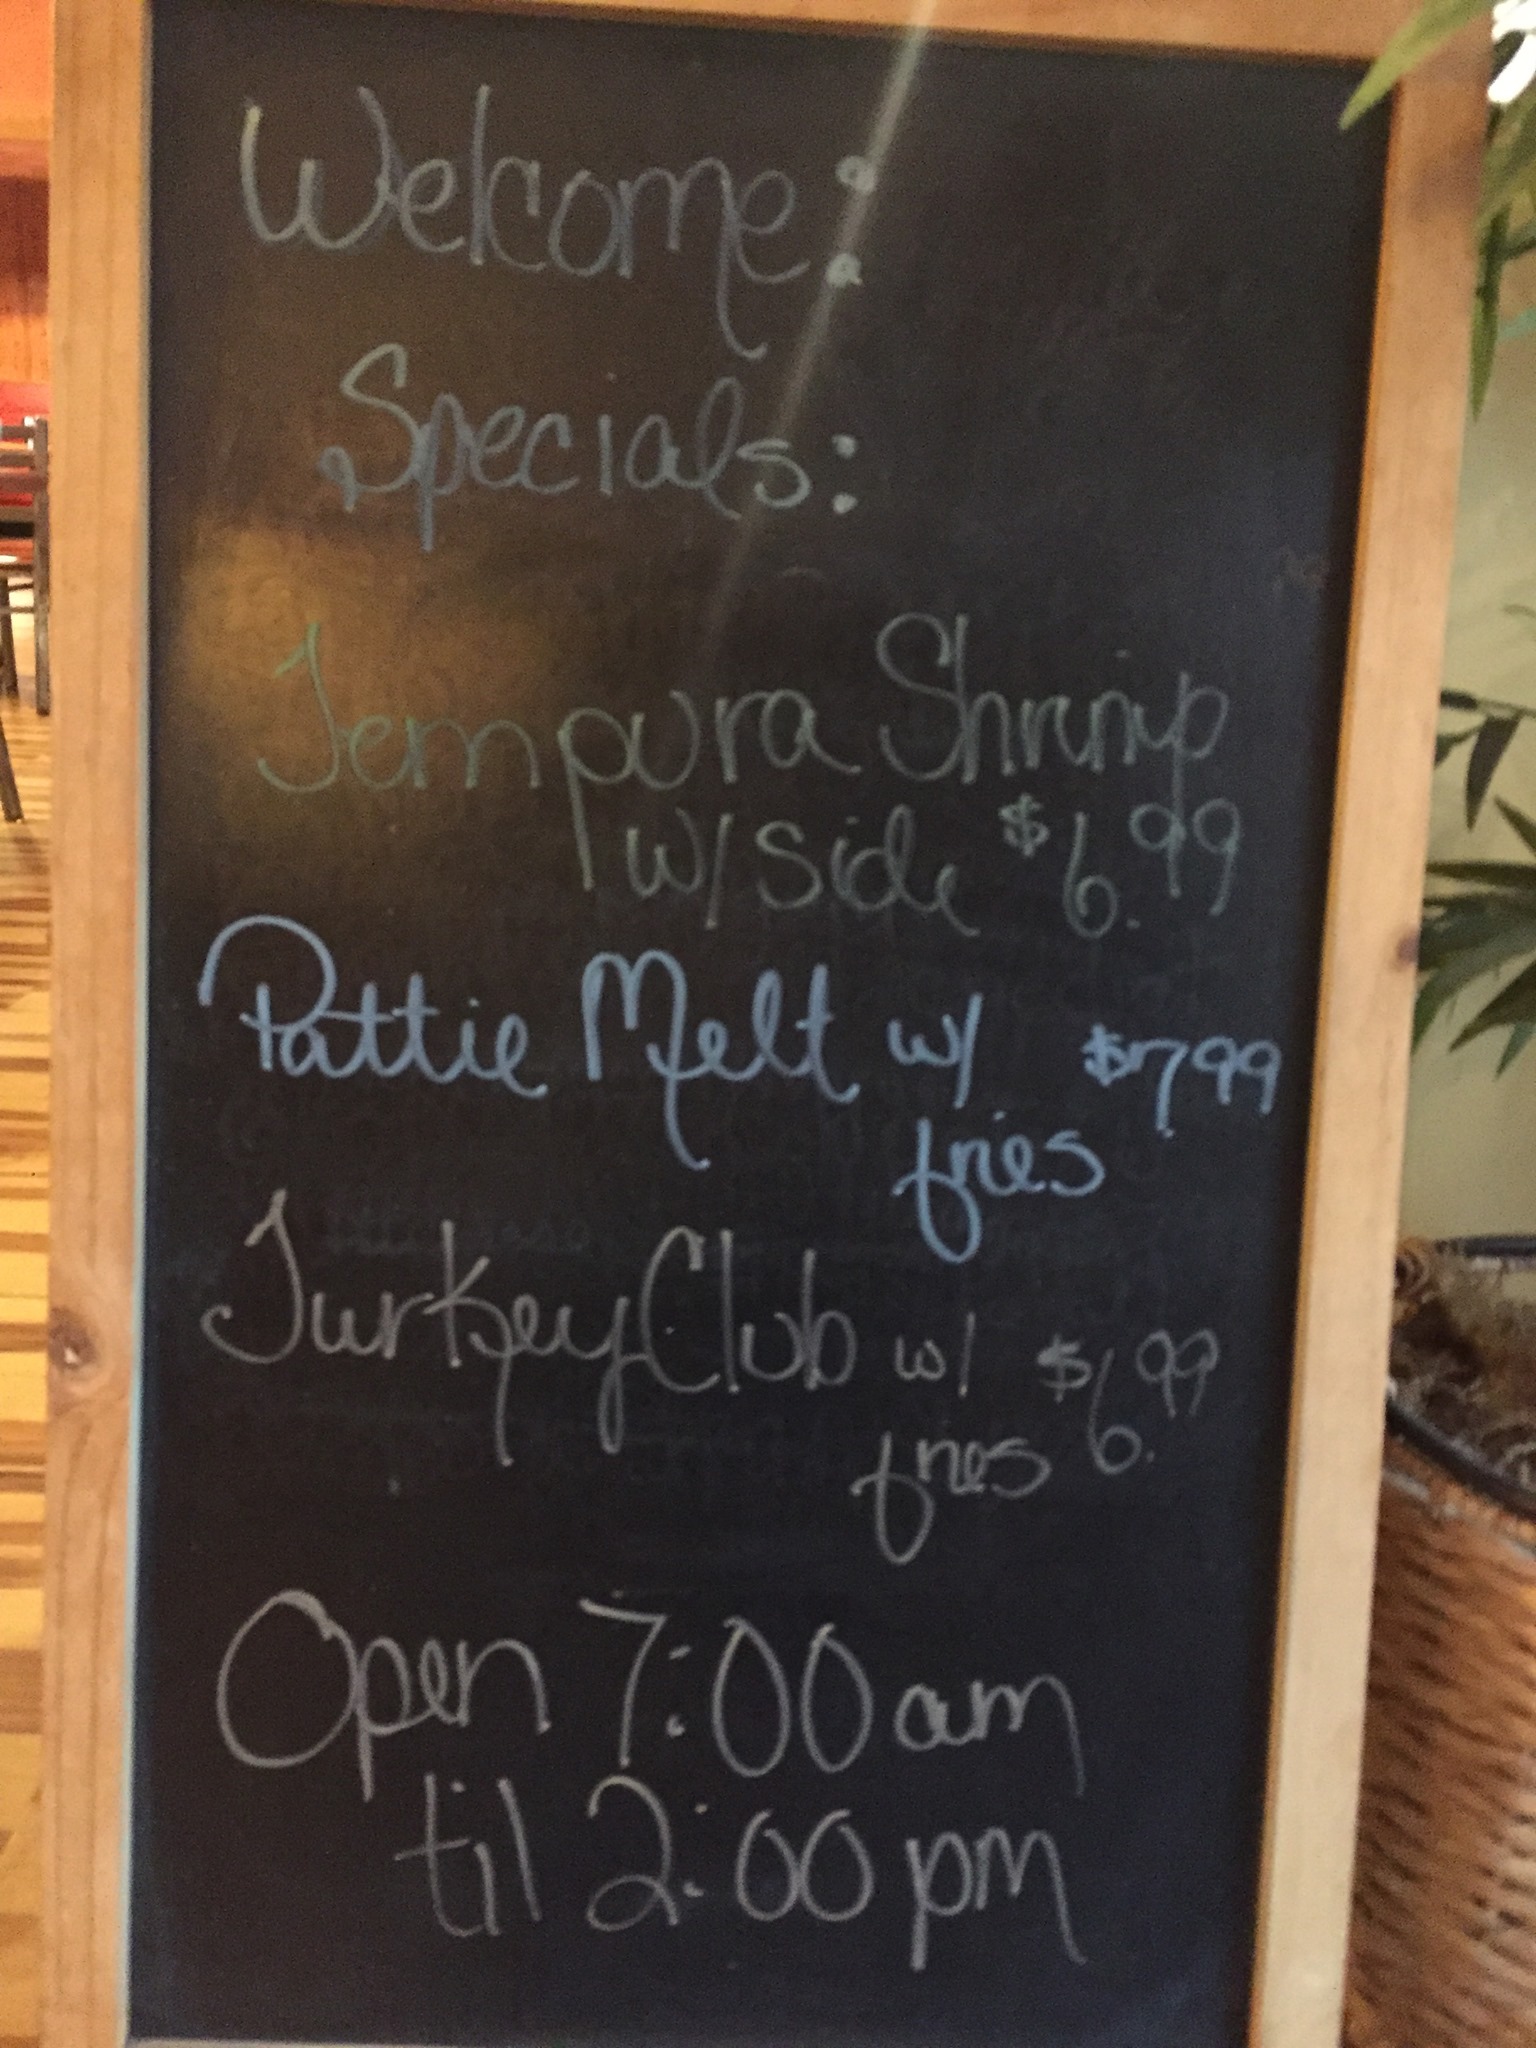 Welcome:
Specials:
Tempura Shrimp
w/ side $6.99
Pattie Melt w/ $7.99
fries
Turkey Club w/ $6.99
fries
Open 7:00 am
til 2:00 pm